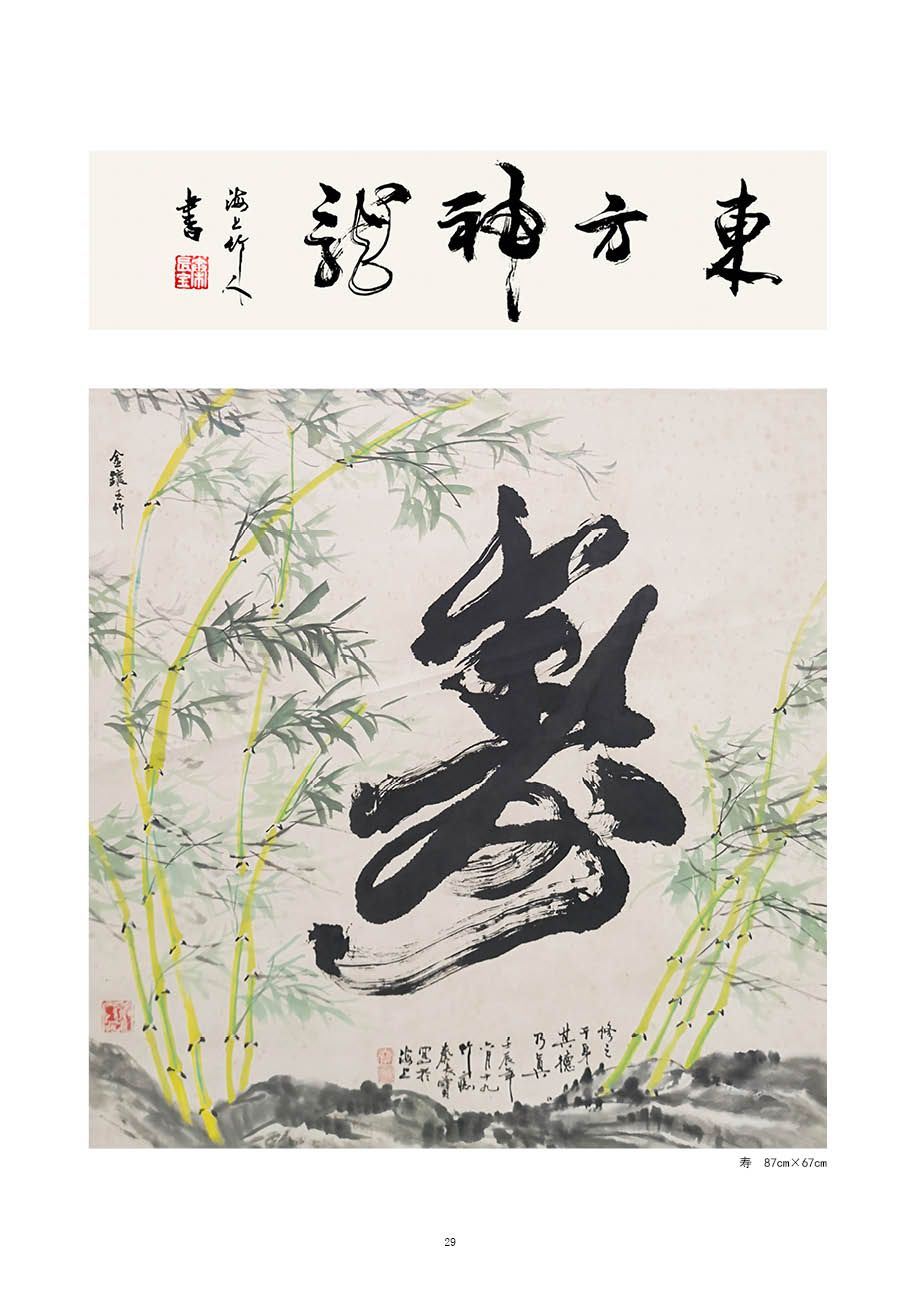 東方神龍
海上竹人
書
金鑲玉竹
壽
修之
于身
其德
乃真
壬辰年
六月十九
竹
寫於
海上
寿 87cm×67cm
29